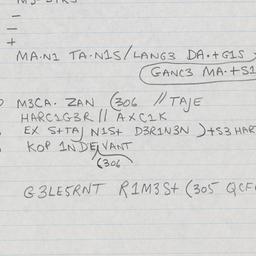 MA·N1 TA·N1S/LANG3 DA·+G1S
GANC3 MA·+S1
M3CA. ZAN (306 // TAJE
HARC1G3R || AXC1K
EX S+TAJ N1S+ D3R1N3N )+S3 HAR
KOP 1NDE VANT
(306
G3LE5RNT R1M3S+ (305 QCF